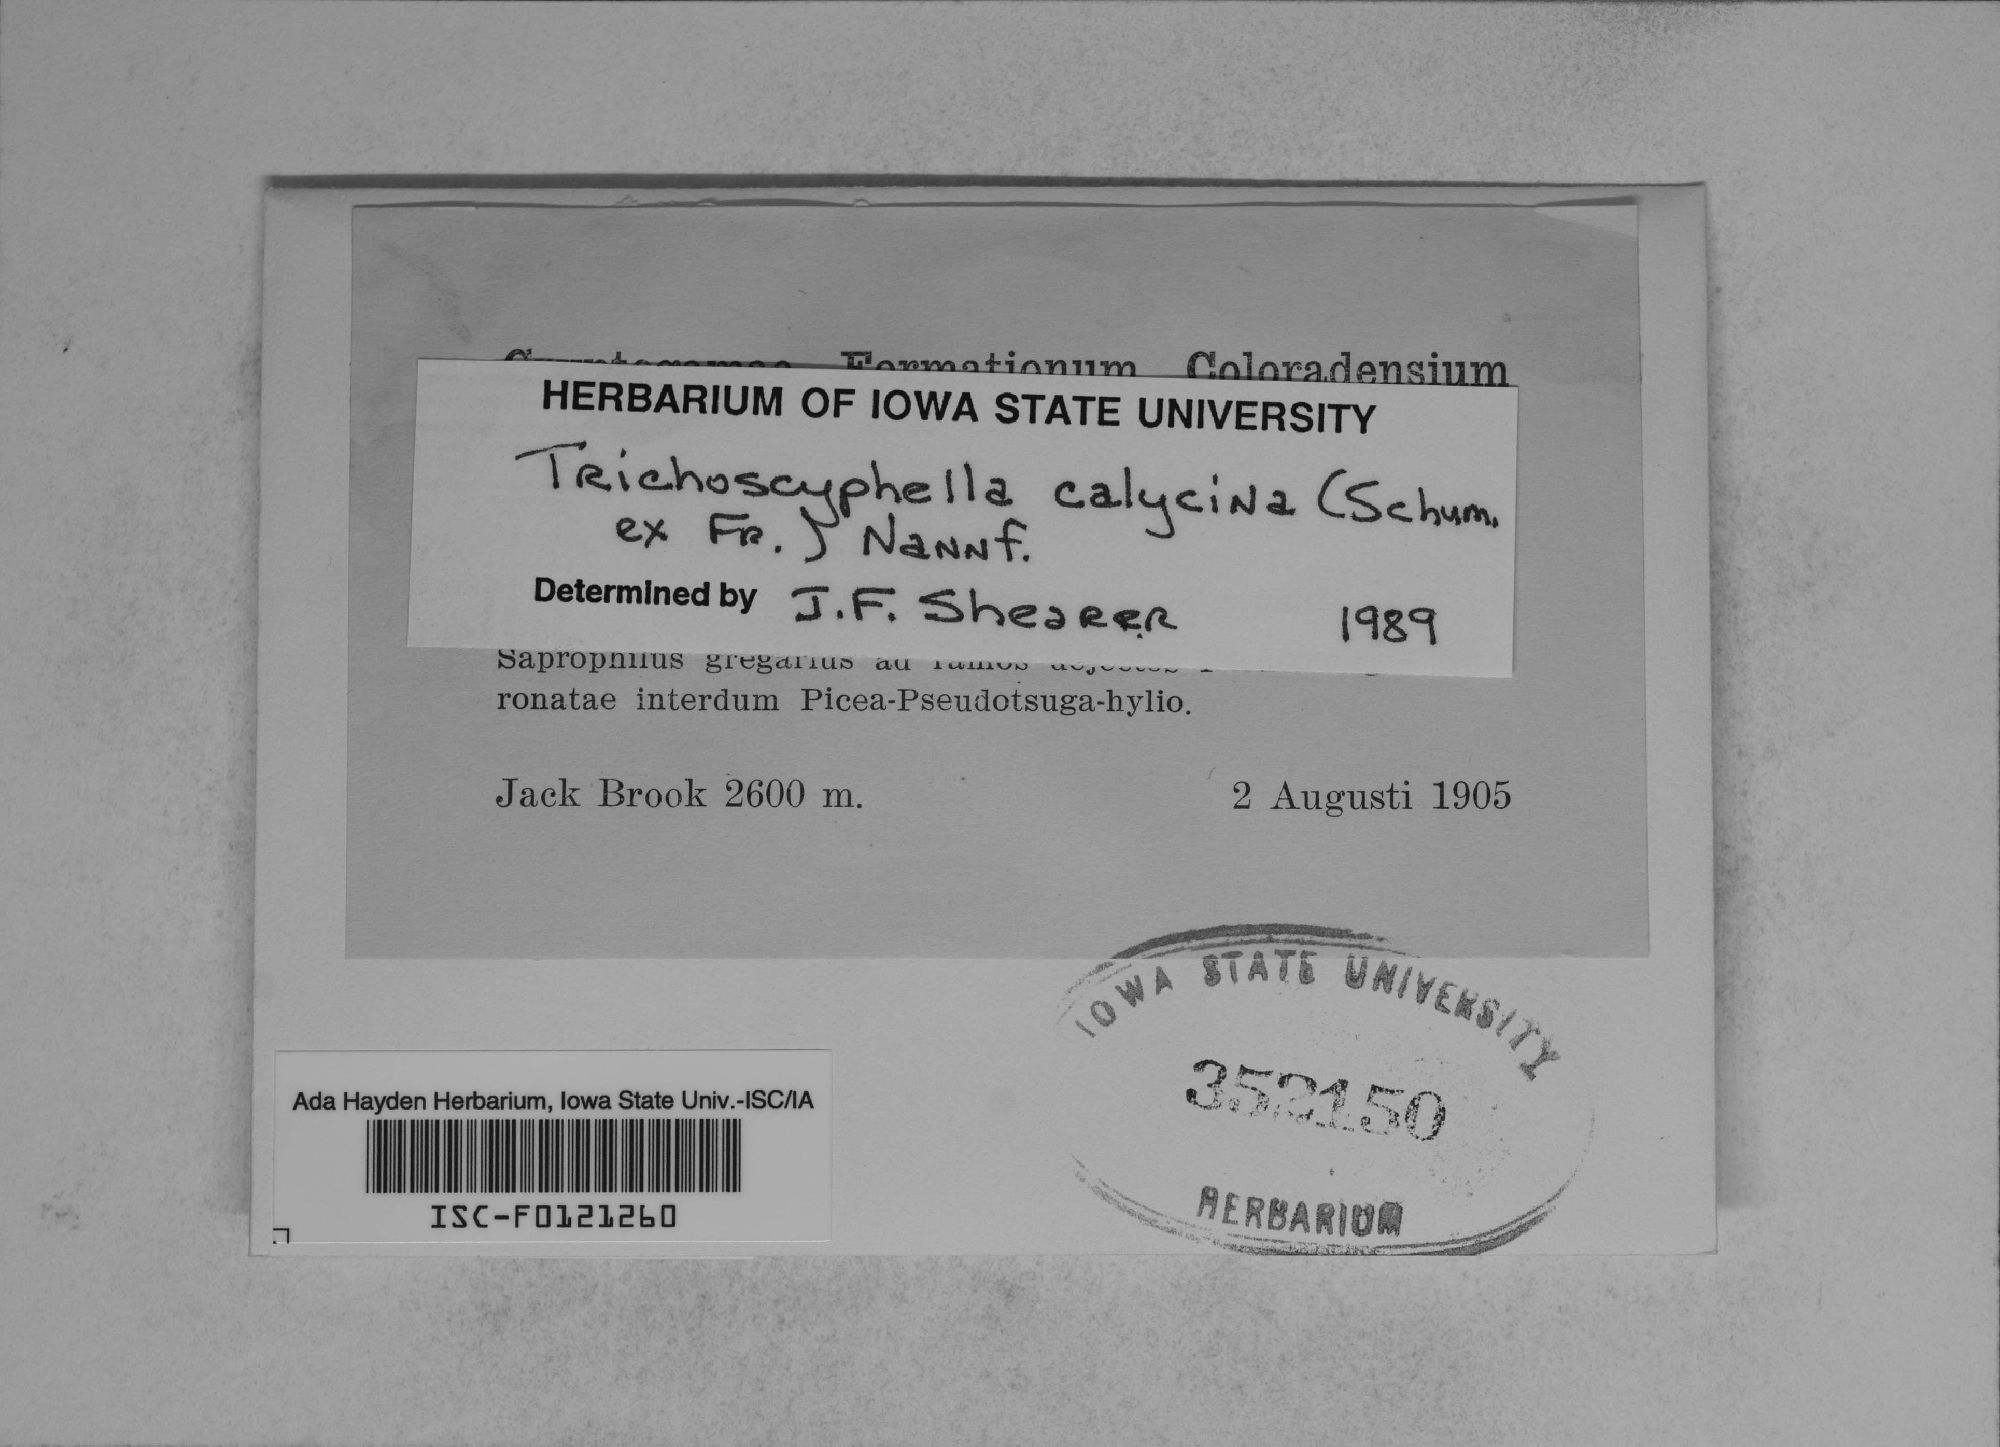 Cryptogamae Formationum Coloradensium
HERBARIUM OF IOWA STATE UNIVERSITY
Trichoscyphella calycina (Schum.
ex Fr.) Nannf.
Determined by J.F. Shearer 1989
Saprophilus gregarius ad ramos dejectos
ronatae interdum Picea-Pseudotsuga-hylio.
Jack Brook 2600 m. 2 Augusti 1905
IOWA STATE UNIVERSITY
352150
HERBARIUM
Ada Hayden Herbarium, Iowa State Univ.-ISC/IA
ISC-F0121260